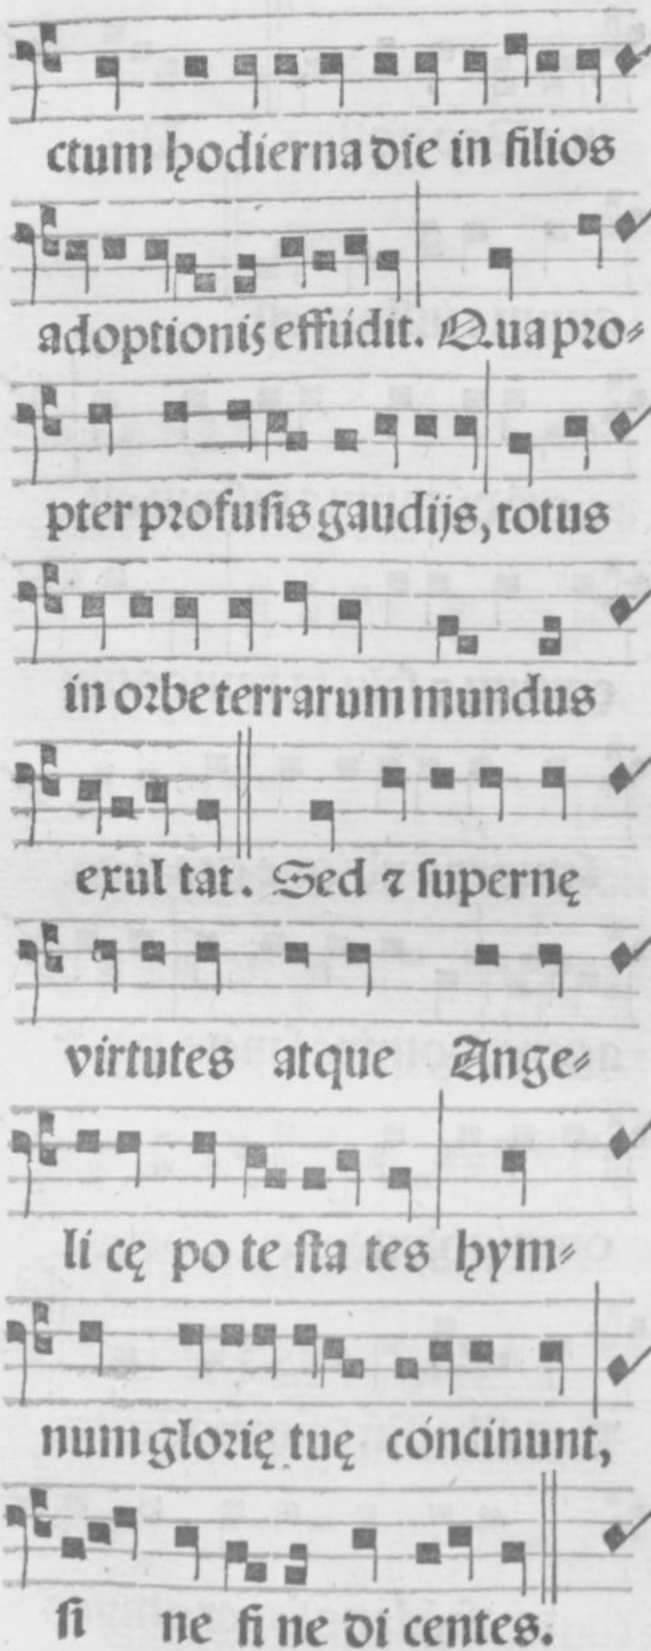 ctum hodierna die in filios
adoptionis effúdit. Quapro-
pter profusis gaudijs, totus
in orbe terrarum mundus
exul tat. Sed ⁊ supernę
virtutes atque Ange-
li cę po te sta tes hym-
num glorię tuę cóncinunt,
si ne fi ne di centes.